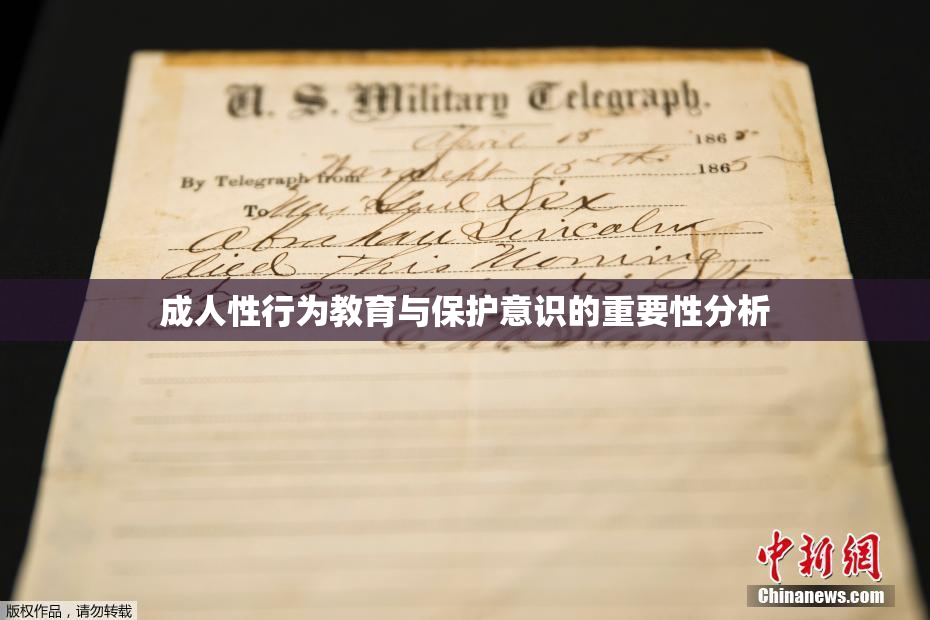 U. S. Military Telegraph.
April 15 1865
By Telegraph from War Dept 15th 1865
To Maj Genl Dix
Abraham Lincoln
died this Morning
at 22 minutes after
成人性行为教育与保护意识的重要性分析
E. M. Stanton
中新網
Chinanews.com
版权作品，请勿转载